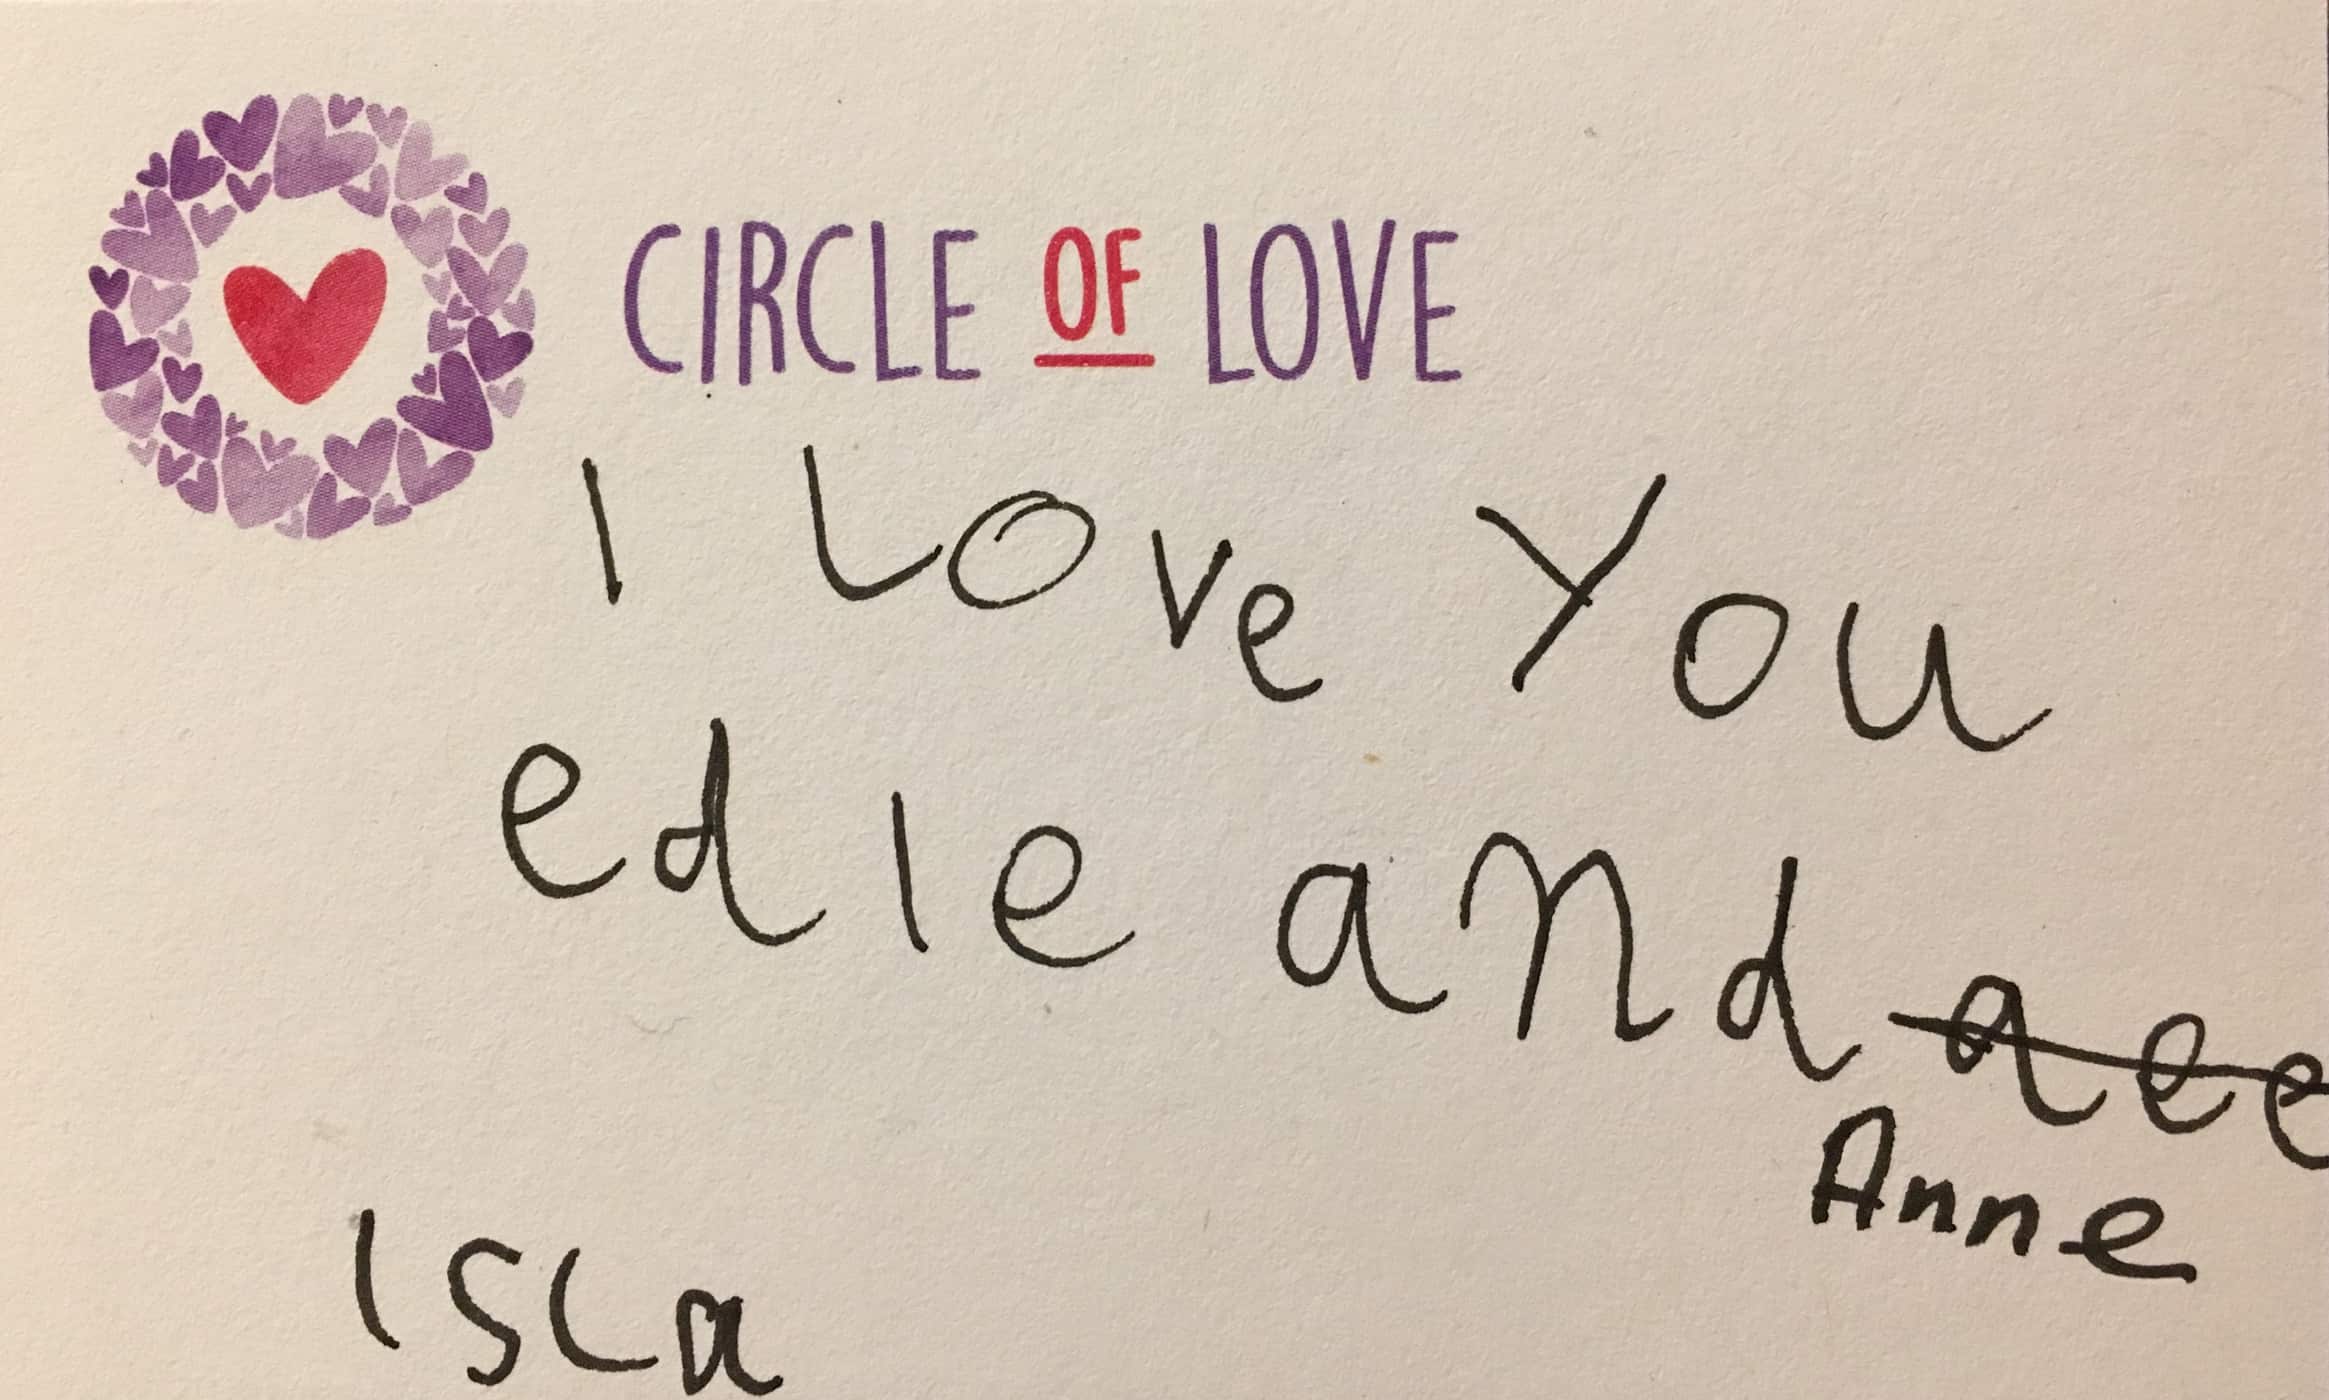 CIRCLE OF LOVE
I Love You
edie and aee
Anne
Isla